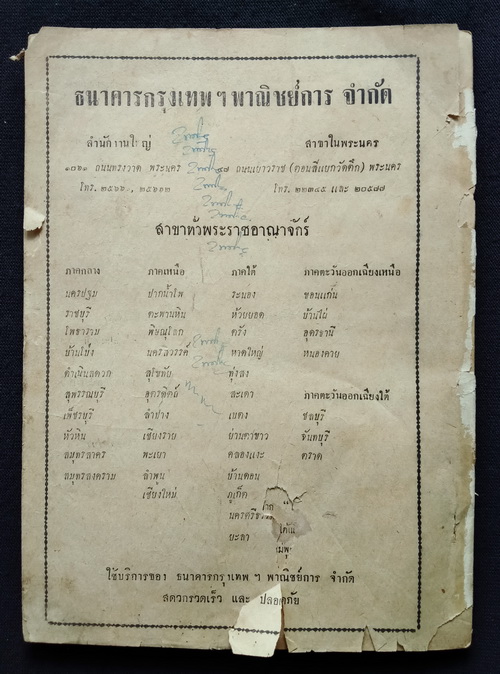 ธนาคารกรุงเทพ ฯ พาณิชย์การ จำกัด
สำนักงานใหญ่ สาขาในพระนคร
ถนนทรงวาด พระนคร ถนนเยาวราช (ตอนสี่แยกวัดตึก) พระนคร
โทร. ๒๕๖๖๐, ๒๕๖๒๒ โทร. ๒๒๓๔๕ และ ๒๐๕๘๘
สาขาทั่วพระราชอาณาจักร์
ภาคกลาง ภาคเหนือ ภาคใต้ ภาคตะวันออกเฉียงเหนือ
นครปฐม ปากน้ำโพ ระนอง ขอนแก่น
ราชบุรี ตะพานหิน ห้วยยอด บ้านไผ่
โพธาราม พิษณุโลก ตรัง อุดรธานี
บ้านโป่ง นครสวรรค์ หาดใหญ่ หนองคาย
ดำเนินสดวก สุโขทัย ทุ่งสง
สุพรรณบุรี อุตรดิตถ์ สะเดา ภาคตะวันออกเฉียงใต้
เพ็ชรบุรี ลำปาง เบตง ชลบุรี
หัวหิน เชียงราย ย่านตาขาว จันทบุรี
สมุทรสาคร พะเยา คลองแงะ ตราด
สมุทรสงคราม ลำพูน บ้านดอน
เชียงใหม่ ภูเก็ต
ยะลา
ใช้บริการของ ธนาคารกรุงเทพ ฯ พาณิชย์การ จำกัด
สดวกรวดเร็ว และ ปลอดภัย